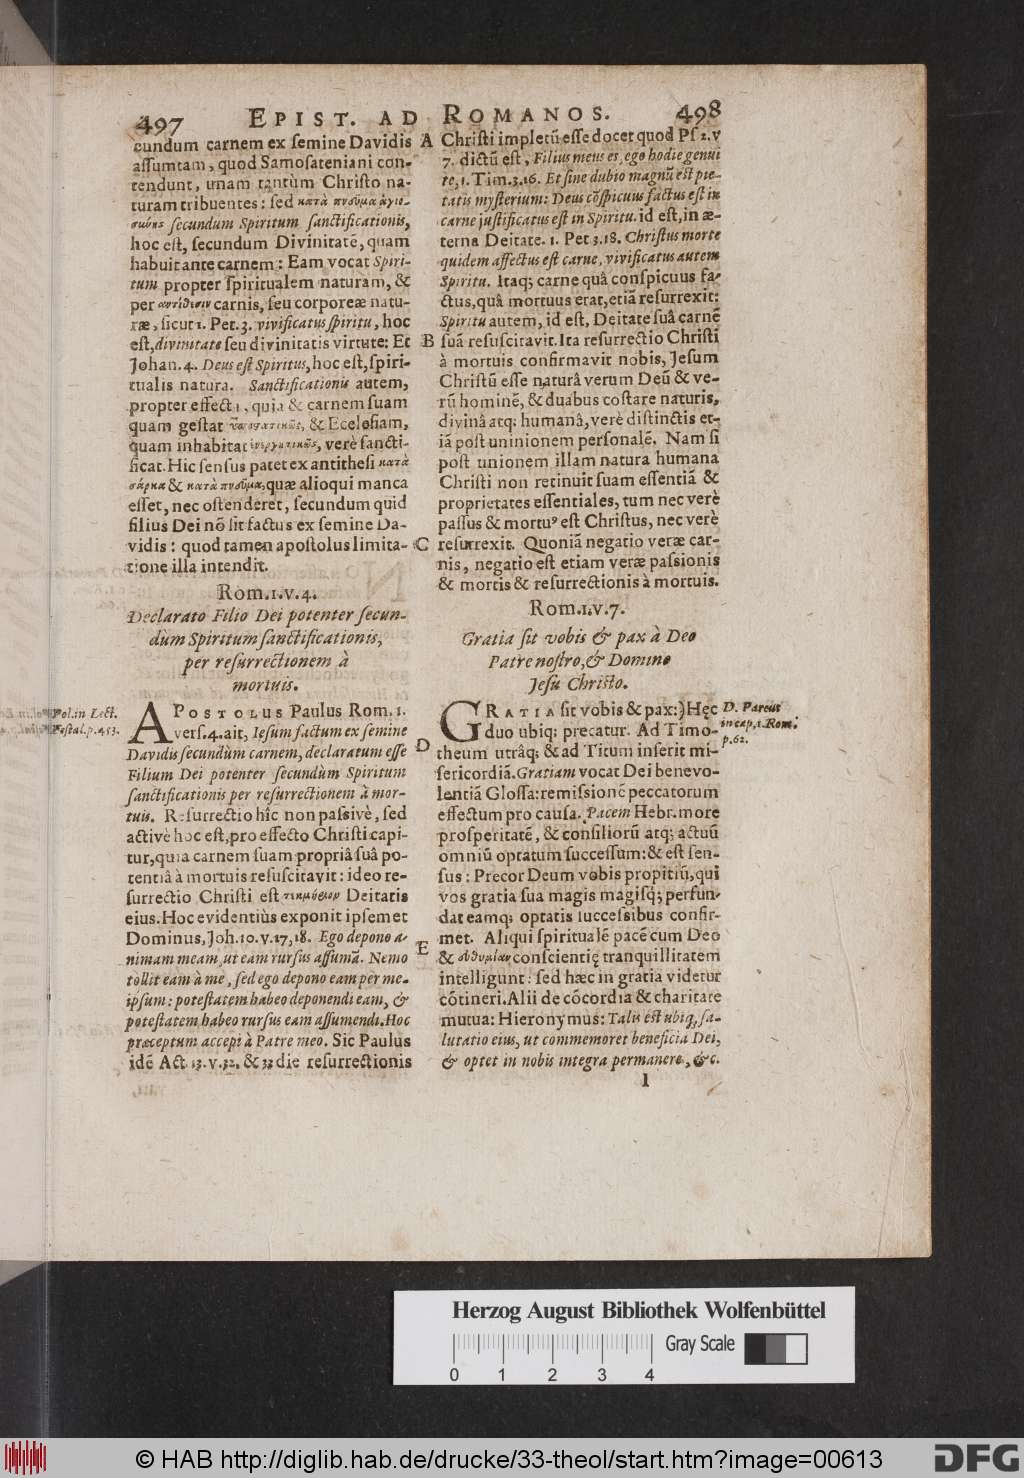 497 EPIST. AD ROMANOS. 498
cundum carnem ex semine Davidis
assumtam, quod Samosateniani con-
tendunt, unam tantùm Christo na-
turam tribuentes: sed κατὰ πνεῦμα ἁγιω-
σύνης secundum Spiritum sanctificationis,
hoc est, secundum Divinitatē, quam
habuit ante carnem: Eam vocat Spiri-
tum propter spiritualem naturam, &
per ἀντίθεσιν carnis, seu corporeæ natu-
ræ, sicut 1. Pet. 3. vivificatus spiritu, hoc
est, divinitate seu divinitatis virtute: Et
Johan. 4. Deus est Spiritus, hoc est, spiri-
tualis natura. Sanctificationis autem,
propter effectū, quia & carnem suam
quam gestat ὑποστατικῶς, & Ecclesiam,
quam inhabitat ἐνεργητικῶς, verè sancti-
ficat. Hic sensus patet ex antithesi κατὰ
σάρκα & κατὰ πνεῦμα, quæ alioqui manca
esset, nec ostenderet, secundum quid
filius Dei nō sit factus ex semine Da-
vidis: quod tamen apostolus limita-
tione illa intendit.
Rom. 1. v. 4.
Declarato Filio Dei potenter secun-
dùm Spiritum sanctificationis,
per resurrectionem à
mortuis.
Pol. in Lect.
Festal. p. 453.
APOSTOLUS Paulus Rom. 1.
vers. 4. ait, Iesum factum ex semine
Davidis secundùm carnem, declaratum esse
Filium Dei potenter secundùm Spiritum
sanctificationis per resurrectionem à mor-
tuis. Resurrectio hîc non passivè, sed
activè hoc est, pro effecto Christi capi-
tur, quia carnem suam propriâ suâ po-
tentiâ à mortuis resuscitavit: ideo re-
surrectio Christi est τεκμήριον Deitatis
eius. Hoc evidentiùs exponit ipsemet
Dominus, Joh. 10. v. 17, 18. Ego depono a-
nimam meam, ut eam rursus assumā. Nemo
tollit eam à me, sed ego depono eam per me-
ipsum: potestatem habeo deponendi eam, &
potestatem habeo rursus eam assumendi. Hoc
præceptum accepi à Patre meo. Sic Paulus
idē Act. 13. v. 32. & 33 die resurrectionis
A
B
C
D
E
Christi impletū esse docet quod Ps 2. v
7. dictū est, Filius meus es, ego hodie genui
te, 1. Tim. 3. 16. Et sine dubio magnū est pie-
tatis mysterium: Deus cōspicuus factus est in
carne justificatus est in Spiritu. id est, in æ-
terna Deitate. 1. Pet 3. 18. Christus morte
quidem affectus est carne, vivificatus autem
Spiritu. Itaq; carne quâ conspicuus fa-
ctus, quâ mortuus erat, etiā resurrexit:
Spiritu autem, id est, Deitate suâ carnē
suā resuscitavit. Ita resurrectio Christi
à mortuis confirmavit nobis, Jesum
Christū esse naturâ verum Deū & ve-
rū hominē, & duabus cōstare naturis,
divinâ atq; humanâ, verè distinctis et-
iā post uninionem personalē. Nam si
post unionem illam natura humana
Christi non retinuit suam essentiā &
proprietates essentiales, tum nec verè
passus & mortu⁹ est Christus, nec verè
resurrexit. Quoniā negatio veræ car-
nis, negatio est etiam veræ passionis
& mortis & resurrectionis à mortuis.
Rom. 1. v. 7.
Gratia sit vobis & pax à Deo
Patre nostro, & Domino
Jesu Christo.
GRATIA sit vobis & pax:) Hęc
duo ubiq; precatur. Ad Timo-
theum utrâq; & ad Titum inserit mi-
sericordiā. Gratiam vocat Dei benevo-
lentiā Glossa: remissionē peccatorum
effectum pro causa. Pacem Hebr. more
prosperitatē, & consiliorū atq; actuū
omniū optatum successum: & est sen-
sus: Precor Deum vobis propitiū, qui
vos gratia sua magis magisq́; perfun-
dat eamq; optatis successibus confir-
met. Aliqui spiritualē pacē cum Deo
& εὐθυμίαν conscientię tranquillitatem
intelligunt: sed hæc in gratia videtur
cōtineri. Alii de cōcordia & charitate
mutua: Hieronymus: Talis est ubiq, sa-
lutatio eius, ut commemoret beneficia Dei,
& optet in nobis integra permanere, &c.
D. Pareus
in cap, 1. Rom.
p. 62.
I
Herzog August Bibliothek Wolfenbüttel
0 1 2 3 4
Gray Scale
© HAB http://diglib.hab.de/drucke/33-theol/start.htm?image=00613
DFG